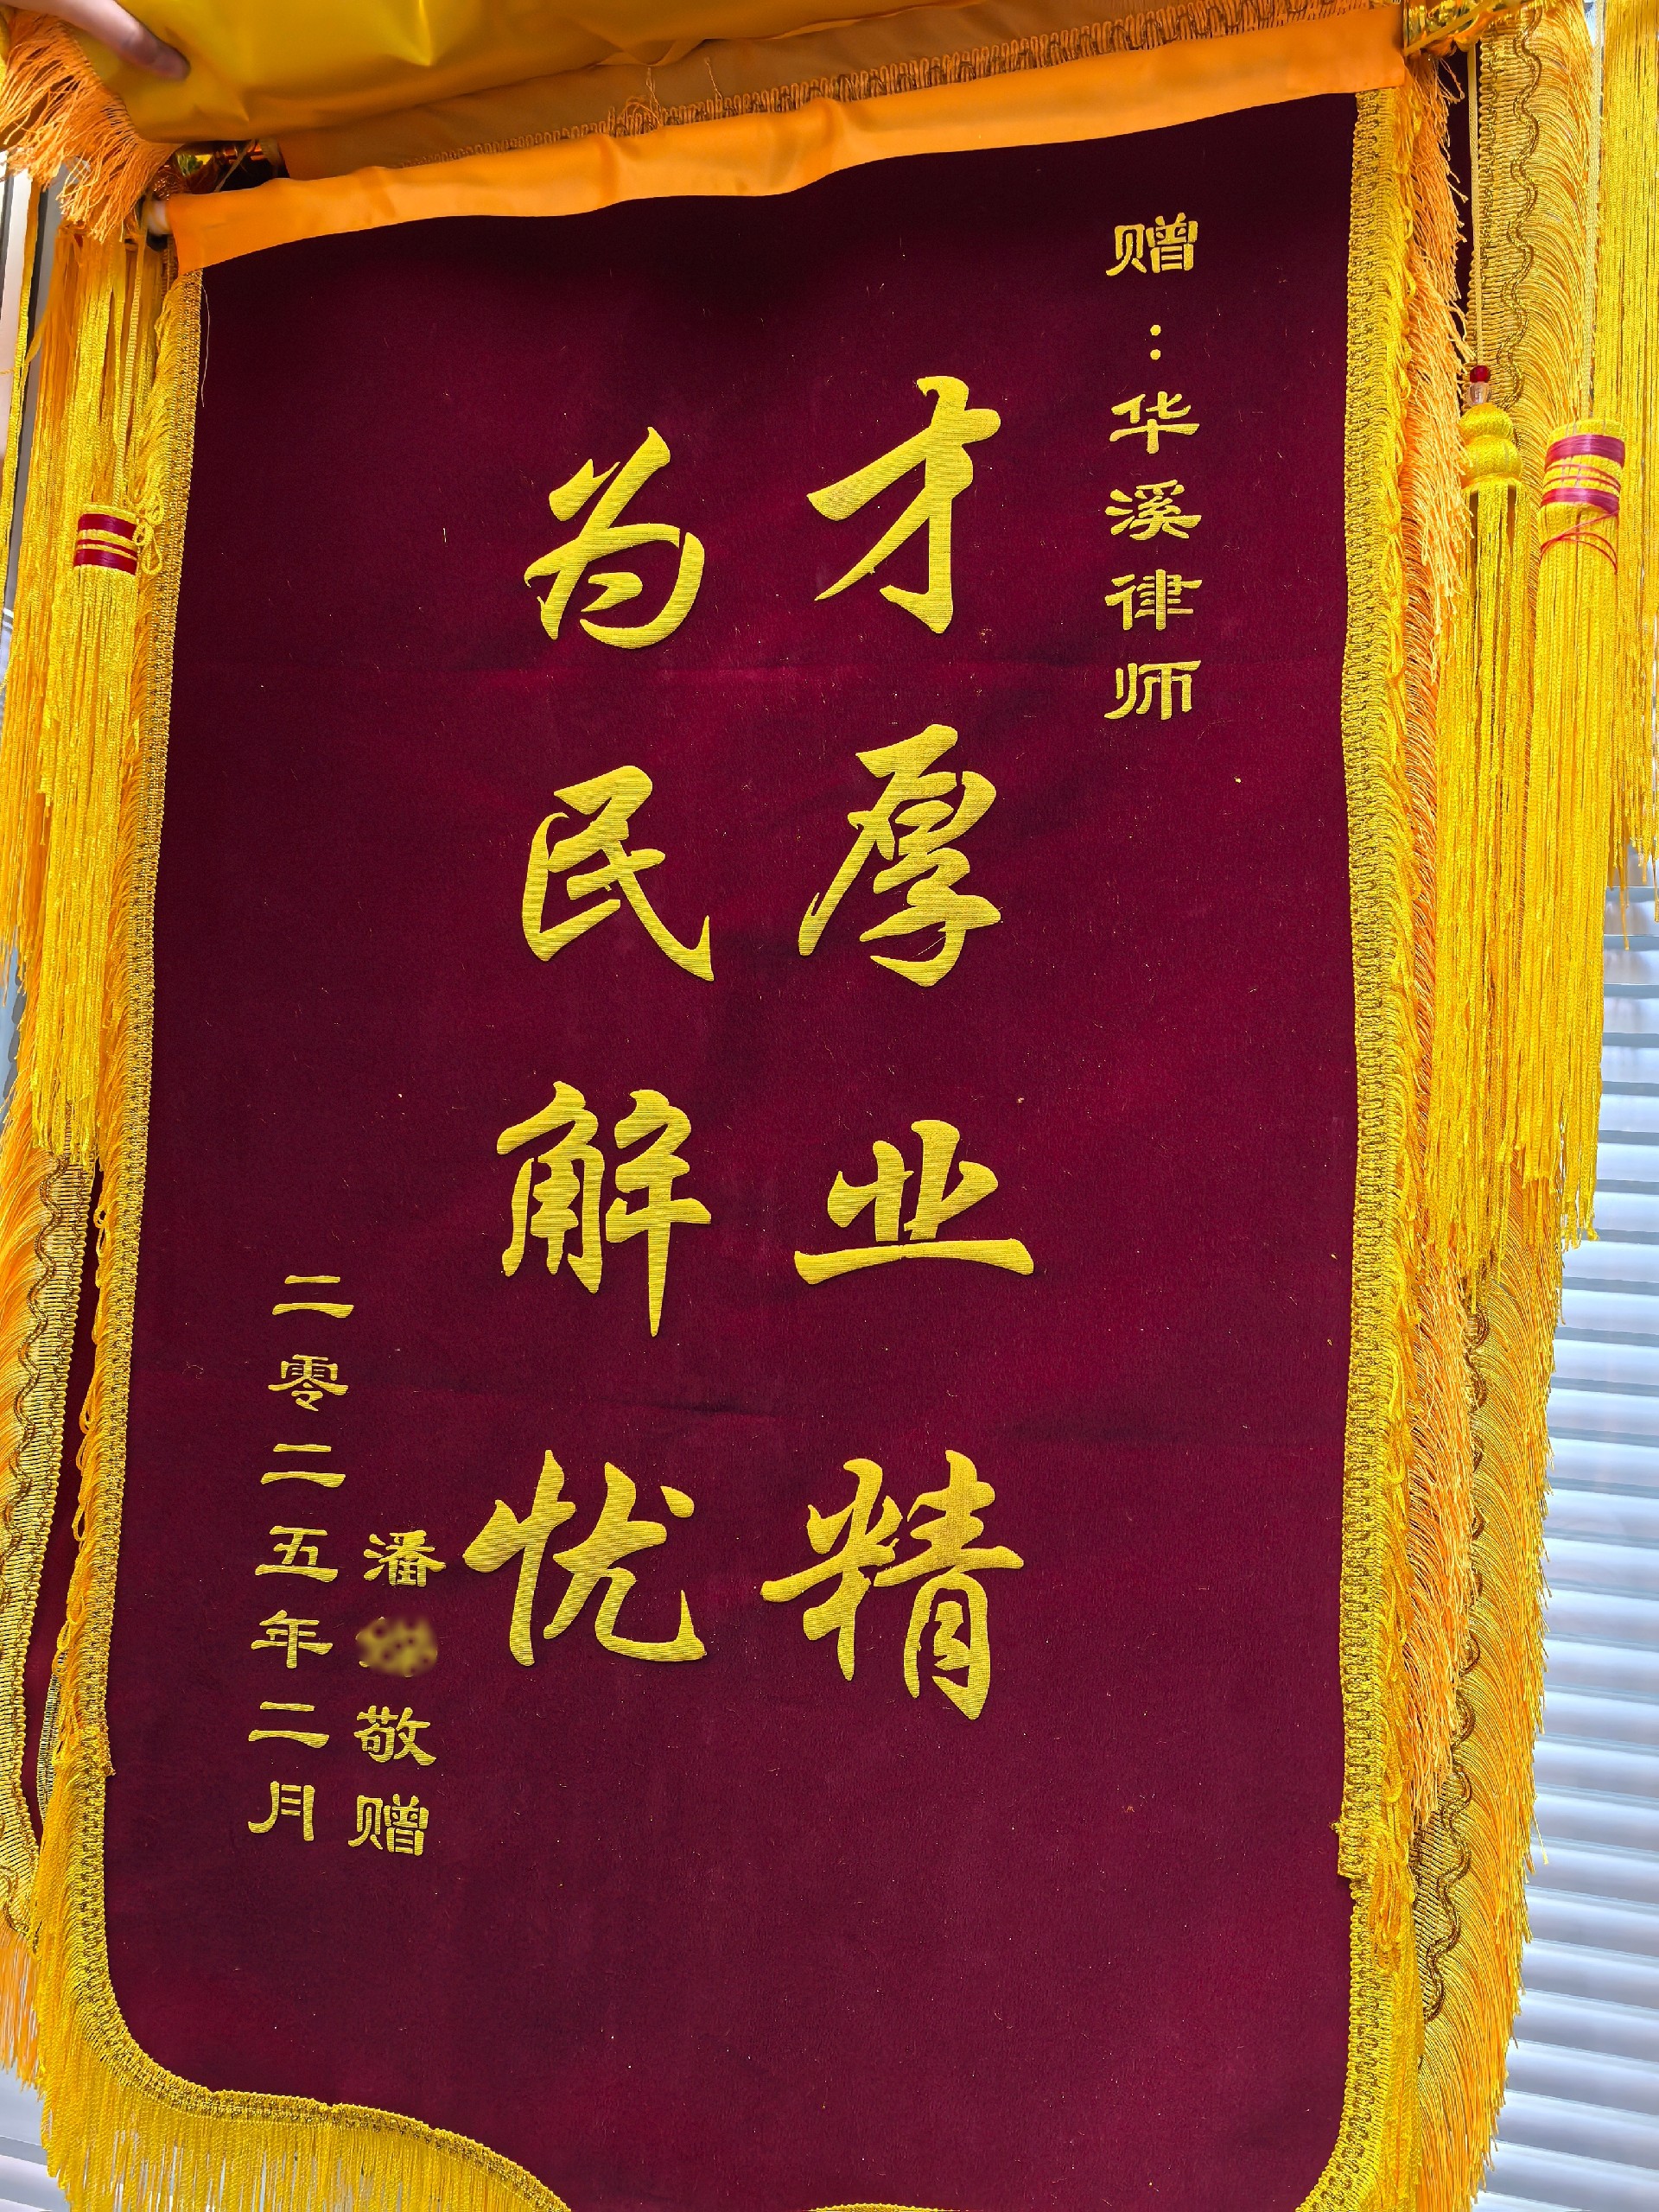 赠：华溪律师
才厚业精
为民解忧
潘敬赠
二零二五年二月